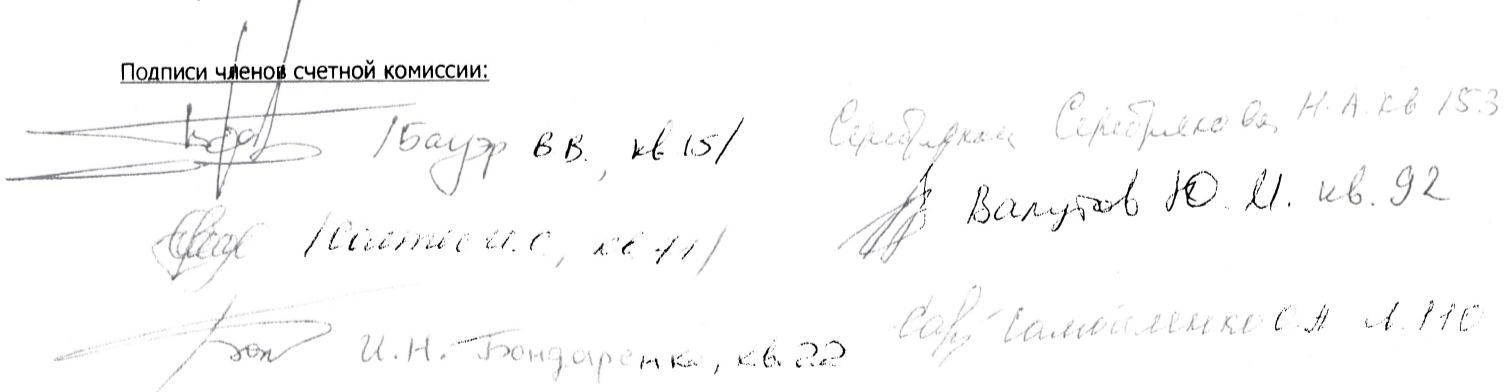 Подписи членов счетной комиссии:
/Бауэр В В., кв 15/
И.С., кв 11/
И.Н. Бондаренко, кв. 22
Серебрякова Н.А. кв 153
Валутов Ю.И. кв. 92
Самойленко О.А 110